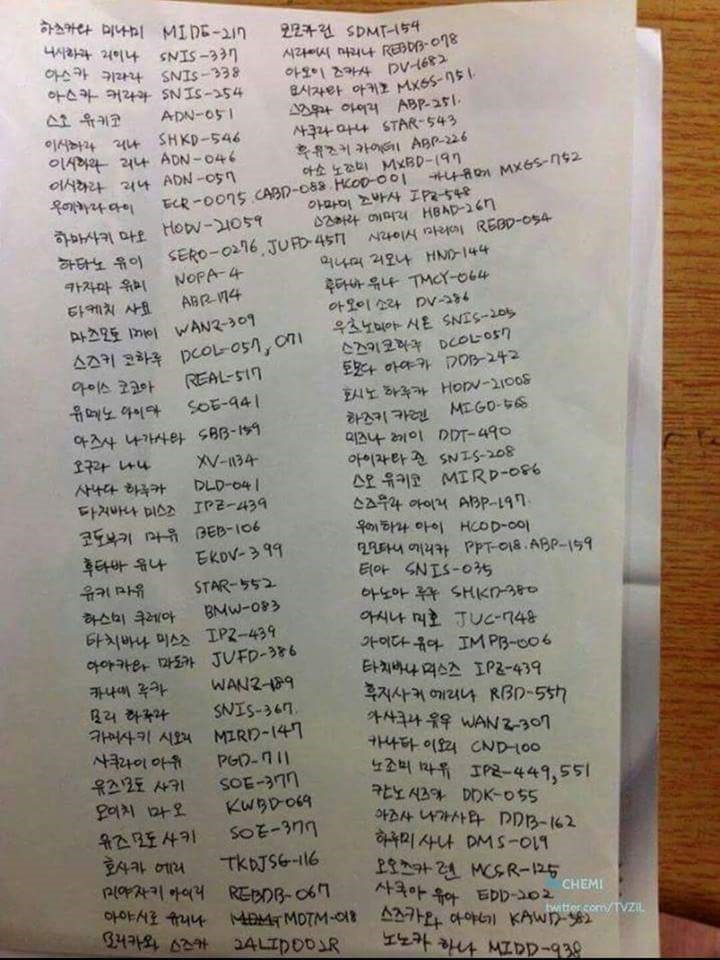 하즈카와 미나미 MIDE-217
니시하라 리이나 SNIS-337
아스카 키라라 SNIS-338
아스카 키라라 SNIS-254
스오 유키코 ADN-051
이시하라 리나 SHKD-546
이시하라 리나 ADN-046
이시하라 리나 ADN-057
우에하라 아이 ECR-0075, CABD-088, HCOD-001
하마사키 마오 HODV-21059
하타노 유이 SERO-0276, JUFD-457
카자마 유미 NOPA-4
타케치 사요 ABR174
마츠모토 메이 WANZ-309
스즈키 코하루 DCOL-057, 071
아이스 코코아 REAL-517
유메노 아이카 SOE-941
아즈사 나가사와 SBB-159
오구라 나나 XV-1134
사나다 하루카 DLD-041
타치바나 미스즈 IPZ-439
코토부키 마유 BEB-106
후타바 유나 EKDV-399
유키 마유 STAR-552
하스미 쿠레아 BMW-083
타치바나 미스즈 IPZ-439
아야카와 마도카 JUFD-386
카나에 루카 WANZ-189
모리 하루라 SNIS-367
카미사키 시오리 MIRD-147
사쿠라이 아유 PGD-711
유즈모토 사키 SOE-377
모이치 마오 KWBD-069
유즈모토 사키 SOE-377
호사카 에리 TKDJSG-116
미야자키 아이리 REBDB-067
아야시로 유리나 MDTM-018
모리카와 스즈카 24LID002R
모모카 린 SDMT-154
시라이시 마리나 REBDB-078
아오이 츠카사 DV-1682
요시자와 아키호 MXGS-751
스즈무라 아이리 ABP-251
사쿠라 마나 STAR-543
후유즈키 카에데 ABP-226
아소 노조미 MXBD-197
카나 유메 MXGS-752
아마미 츠바사 IPZ-548
스즈하라 에미리 HBAD-267
시라이시 마리에 REBD-054
미나미 리오나 HND-144
후타바 유나 TMCY-064
아오이 소라 DV-286
우츠노미야 시온 SNIS-205
스즈키 코하루 DCOL-057
토모다 아야카 DDB-242
호시노 하루카 HODV-21008
하즈키 카렌 MIGD-568
미즈나 레이 DDT-490
아이자와 준 SNIS-208
스오 유키코 MIRD-086
스즈무라 아이리 ABP-197
우에하라 아이 HCOD-001
모모타니 에리카 PPT-018, ABP-159
티아 SNIS-035
아노아 루루 SHKD-380
아시나 미호 JUC-748
아이다 유아 IMPB-006
타치바나 미스즈 IPZ-439
후지사키 에리나 RBD-557
아사쿠라 유우 WANZ-307
카나타 이오리 CND-100
노조미 마유 IPZ-449, 551
칸노 시즈카 DDK-055
아즈사 나가사와 DDB-162
하루미 사나 DMS-019
오오츠카 렌 MCSR-125
사쿠아 유아 EDD-202
스즈카와 아야네 KAWD-582
노노카 하나 MIDD-938
CHEMI
twitter.com/TVZIL